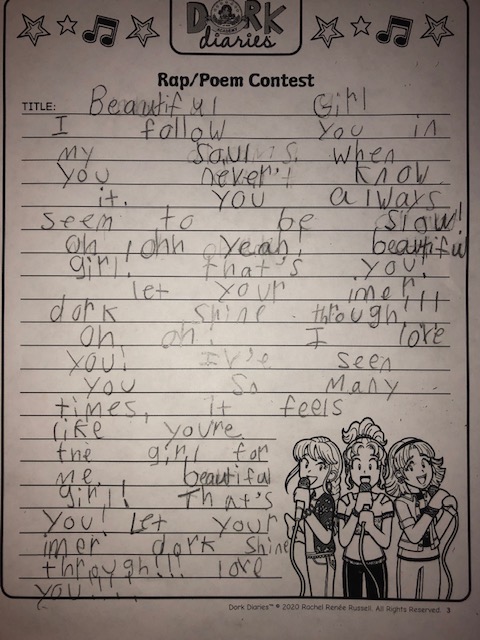 DORK
diaries
Rap/Poem Contest
TITLE: Beautiful Girl
I follow you in
my soul when
you never't know
it. You always
seem to be slow!
Oh, ohh yeah! beautiful
girl! that's you,
let your imer!!!
dork shine through!
Oh, oh! I love
you! Iv'e seen
you so many
times, it feels
like youre
the girl for
me, beautiful
girl!! That's
you! Let your
imer dork shine
through!!! love
you!!!!
Dork Diaries™ © 2020 Rachel Renée Russell. All Rights Reserved. 3